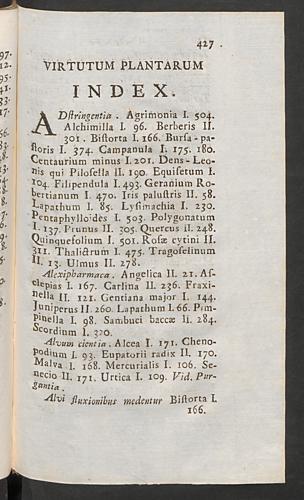 427
VIRTUTUM PLANTARUM
INDEX.
ADstringentia. Agrimonia I. 504.
Alchimilla I. 96. Berberis II.
301. Biſtorta I. 166. Burſa-pa-
ſtoris I. 374. Campanula I. 175. 180.
Centaurium minus I. 201. Dens-Leo-
nis qui Piloſella II. 190. Equiſetum I.
104. Filipendula I. 493. Geranium Ro-
bertianum I. 470. Iris paluſtris II. 58.
Lapathum I. 85. Lyſimachia I. 230.
Pentaphylloides I. 503. Polygonatum
I. 137. Prunus II. 305. Quercus II. 248.
Quinquefolium I. 501. Roſæ cytini II.
311. Thalictrum I. 475. Tragoſelinum
II. 13. Ulmus II. 278.
Alexipharmaca. Angelica II. 21. Aſ-
clepias I. 167. Carlina II. 236. Fraxi-
nella II. 121. Gentiana major I. 144.
Juniperus II. 260. Lapathum I. 66. Pim-
pinella I. 98. Sambuci baccæ II. 284.
Scordium I. 320.
Alvum cientia. Alcea I. 171. Cheno-
podium I. 93. Eupatorii radix II. 170.
Malva I. 168. Mercurialis I. 106. Se-
necio II. 171. Urtica I. 109. Vid. Pur-
gantia.
Alvi fluxionibus medentur Biſtorta I.
166.
97.
12.
95.